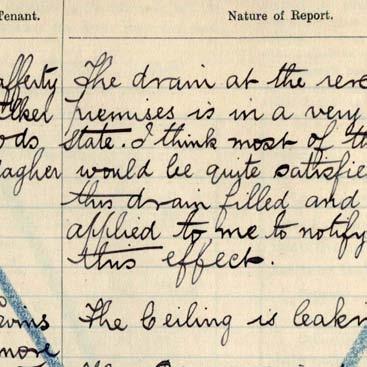 Tenant. Nature of Report.
afferty The drain at the rere
premises is in a very
ods state. I think most of th
lagher would be quite satisfie
this drain filled and
applied to me to notify
this effect.
The Ceiling is leakin
more